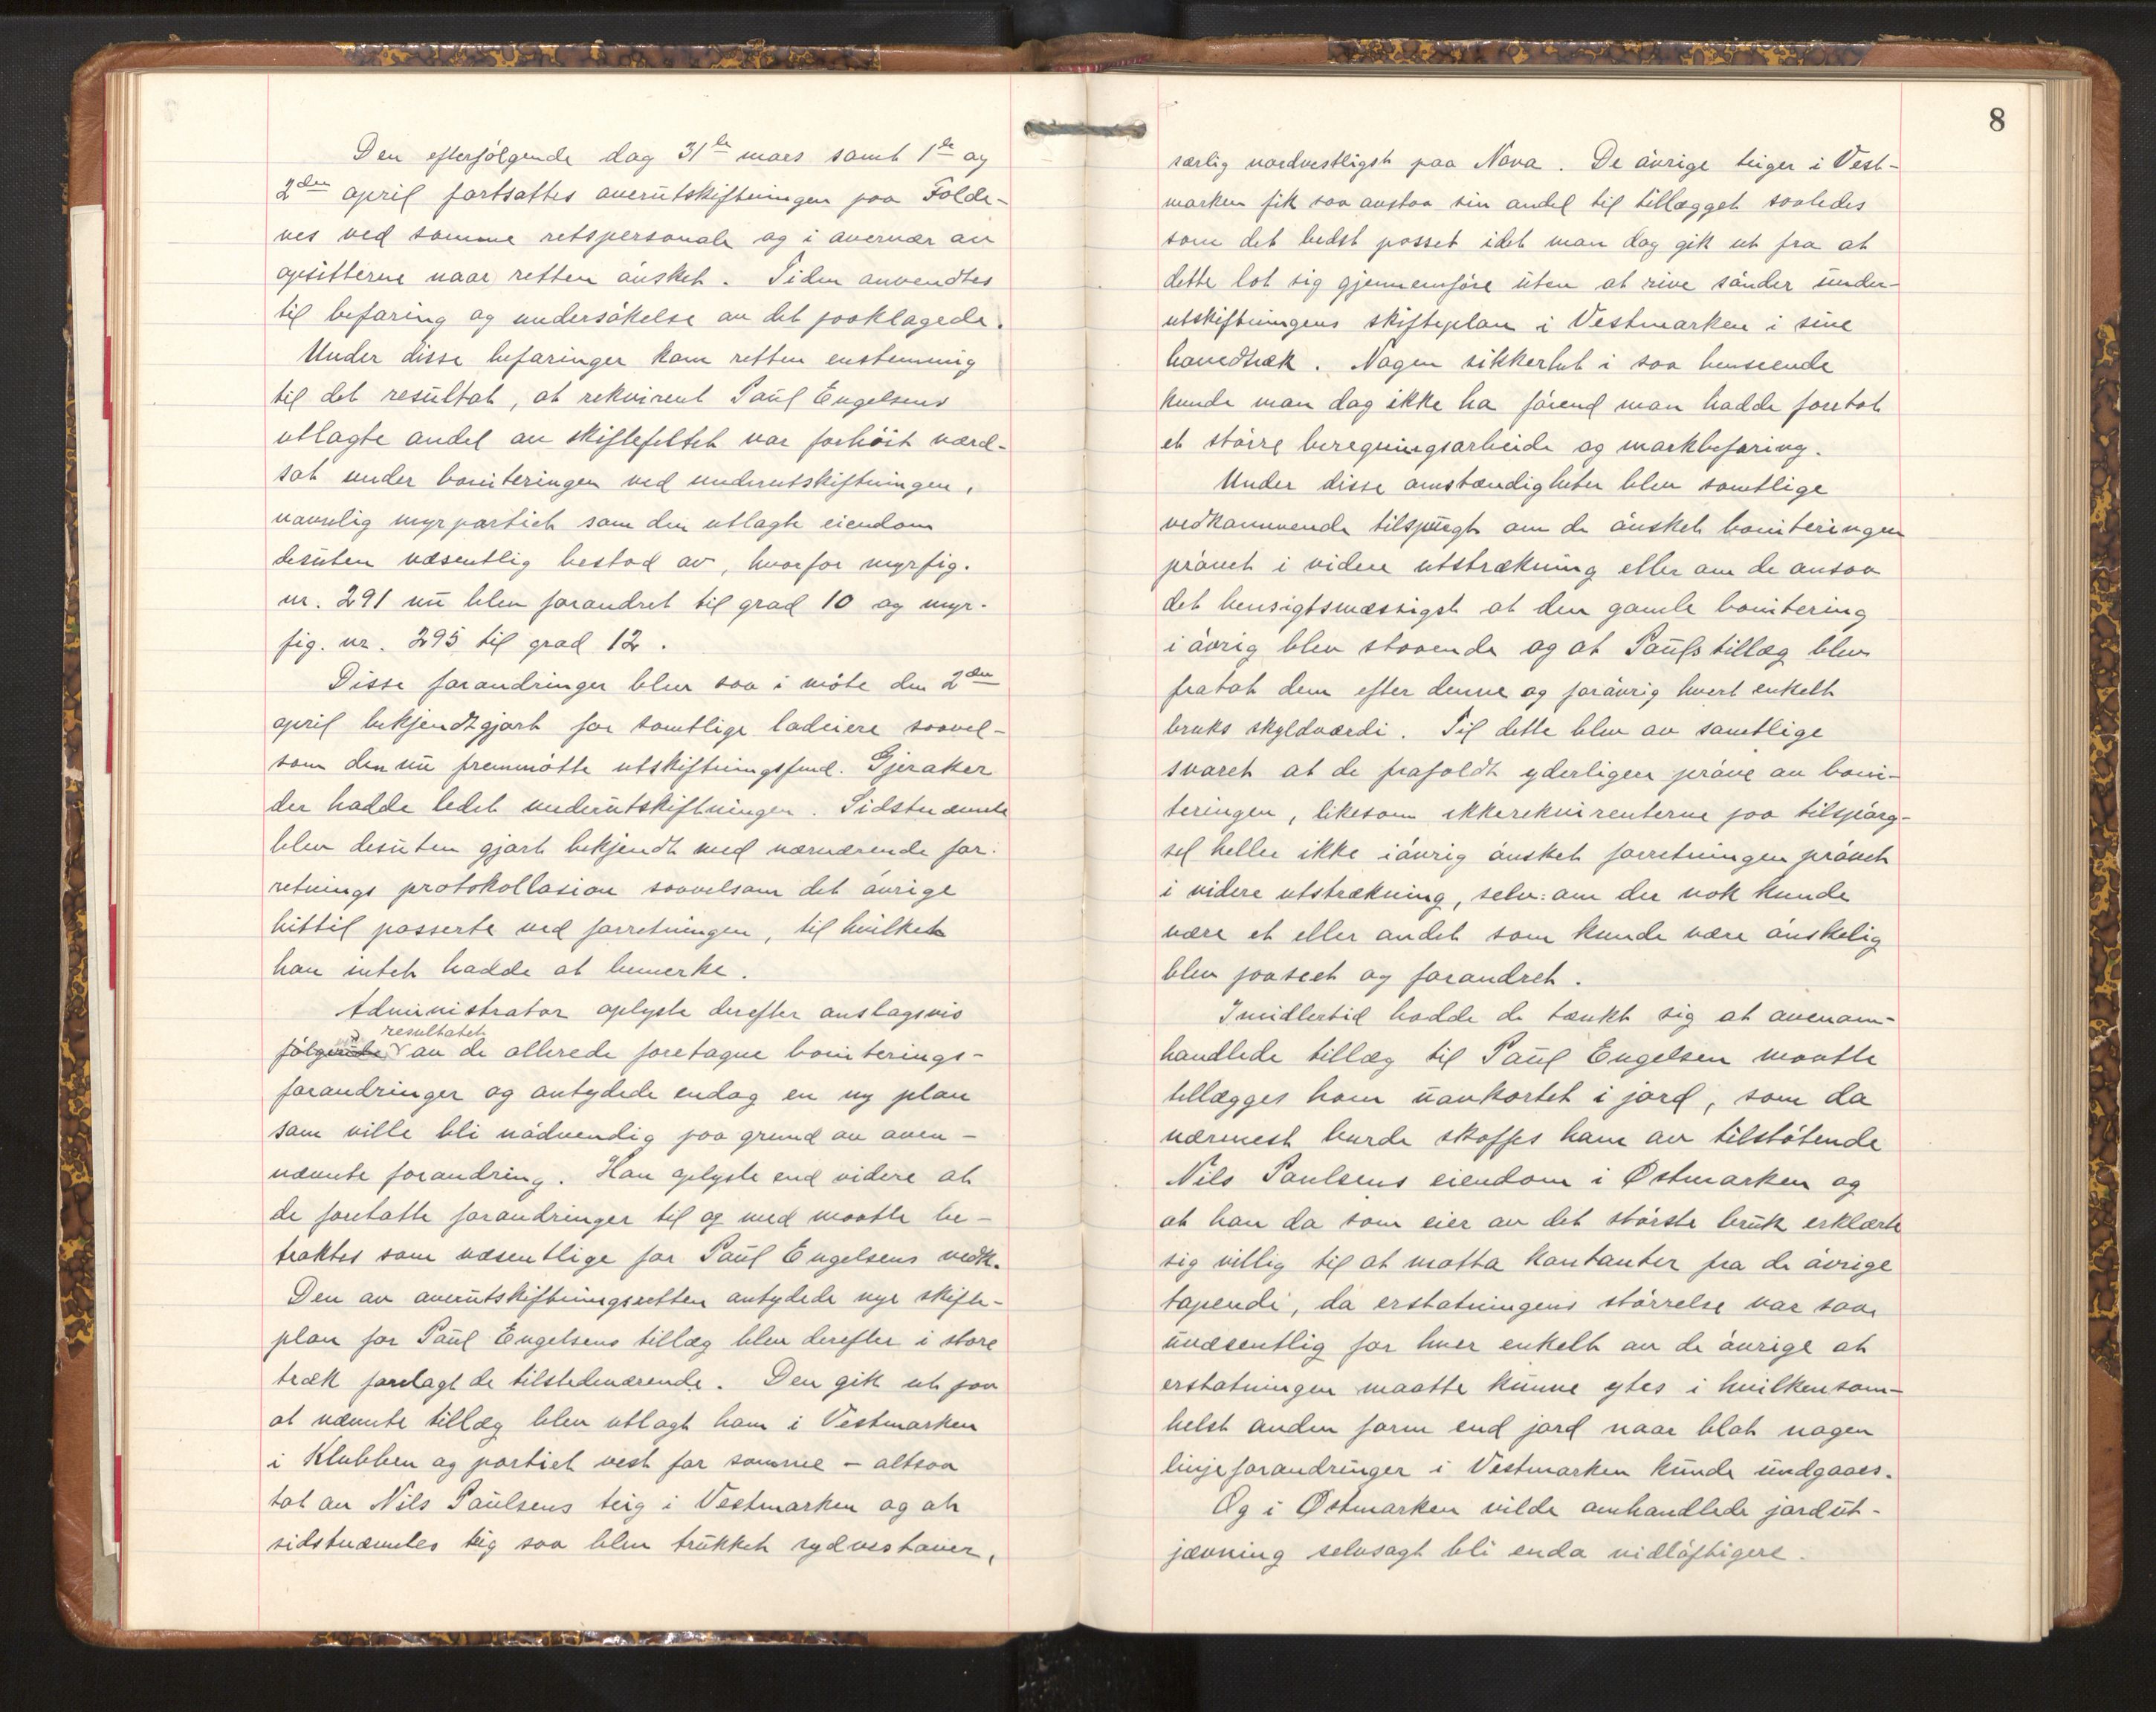 Den efterfølgende dag 31te mars samt 1ste og
2den april fortsattes overutskiftningen paa Folde-
nes ved samme retspersonale og i overvær av
opsitterne naar retten ønsket. Tiden anvendtes
til befaring og undersøkelse av det paaklagede.
Under disse befaringer kom retten enstemmig
til det resultat, at rekvirent Paul Engelsens
utlagte andel av skiftefeltet var forhøit værd-
sat under boniteringen ved underutskiftningen,
navnlig myrpartiet som den utlagte eiendom
desuten væsentlig bestod av, hvorfor myrfig.
nr. 291 nu blev forandret til grad 10 og myr-
fig. nr. 295 til grad 12.
Disse forandringer blev saa i møte den 2den
april bekjendtgjort for samtlige lodeiere saavel-
som den nu fremmøtte utskiftningsfuld. Gjeraker
der hadde ledet underutskiftningen. Sidstnævnte
blev desuten gjort bekjendt med nærværende for-
retnings protokollasion saavelsom det øvrige
hittil passerte ved forretningen, til hvilket
han intet hadde at bemerke.
Administrator oplyste derefter anslagsvis
følgende resultatet av de allerede foretagne boniterings-
forandringer og antydede endog en ny plan
som ville bli nødvendig paa grund av oven-
nævnte forandring. Han oplyste end videre at
de foretatte forandringer til og med maatte be-
traktes som væsentlige for Paul Engelsens vedk.
Den av overutskiftningsretten antydede nye skifte-
plan for Paul Engelsens tillæg blev derefter i store
træk forelagt de tilstedeværende. Den gik ut paa
at nævnte tillæg blev utlagt ham i Vestmarken
i Klubben og partiet vest for samme – altsaa
tat av Nils Paulsens teig i Vestmarken og at
sidstnævntes teig saa blev trukket sydvestover,
8
særlig nordvestligst paa Nova. De øvrige teiger i Vest-
marken fik saa avstaa sin andel til tillægget saaledes
som det bedst passet idet man dog gik ut fra at
dette lot sig gjennemføre uten at rive sønder under-
utskiftningens skifteplan i Vestmarken i sine
hovedtræk. Nogen sikkerhet i saa henseende
kunde man dog ikke ha førend man hadde foretat
et større beregningsarbeide og markbefaring.
Under disse omstændigheter blev samtlige
vedkommende tilspurgt om de ønsket boniteringen
prøvet i videre utstrækning eller om de ansaa
det hensigtsmæssigst at den gamle bonitering
i øvrig blev staaende og at Pauls tillæg blev
fratat dem efter denne og forøvrig hvert enkelt
bruks skyldværdi. Til dette blev av samtlige
svaret at de frafoldt yderligere prøve av boni-
teringen, likesom ikkerekvirenterne paa tilspørg-
sel heller ikke iøvrig ønsket forretningen prøvet
i videre utstrækning, selv om der nok kunde
være et eller andet som kunde være ønskelig
blev paaseet og forandret.
Imidlertid hadde de tænkt sig at ovenom-
handlede tillæg til Paul Engelsen maatte
tillægges ham uavkortet i jord, som da
nærmest burde skaffes ham av tilstøtende
Nils Paulsens eiendom i Østmarken og
at han da som eier av det største bruk erklærte
sig villig til at motta kontanter fra de øvrige
tapendi, da erstatningens størrelse var saa
uvæsentlig for hver enkelt av de øvrige at
erstatningen maatte kunne ytes i hvilkensom-
helst anden form end jord naar blot nogen
linjeforandringer i Vestmarken kunde undgaaes.
Og i Østmarken vilde omhandlede jordut-
jævning selvsagt bli enda vidløftigere.